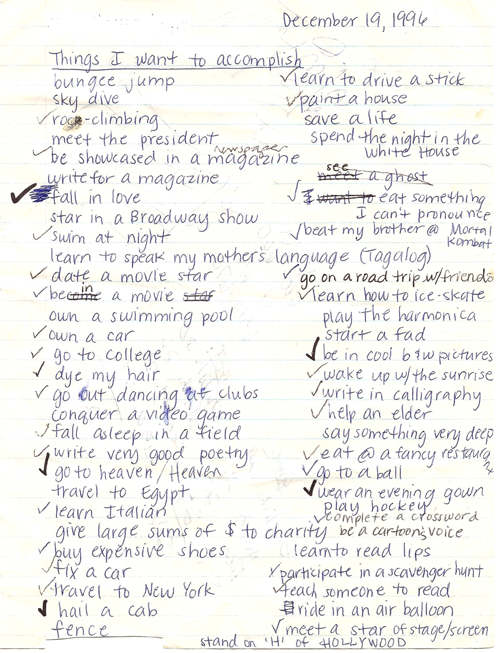 December 19, 1996
Things I want to accomplish
bungee jump
sky dive
✓ rock-climbing
meet the president
newspaper
✓ be showcased in a magazine
write for a magazine
✓ fall in love
star in a Broadway show
✓ swim at night
learn to speak my mothers language (Tagalog)
✓ date a movie star
in
✓ become a movie star
own a swimming pool
✓ own a car
✓ go to college
✓ dye my hair
✓ go out dancing at clubs
conquer a video game
✓ fall asleep in a field
✓ write very good poetry
✓ go to heaven / Heaven
travel to Egypt
✓ learn Italian
give large sums of $ to charity
✓ buy expensive shoes
✓ fix a car
✓ travel to New York
✓ hail a cab
fence
✓ learn to drive a stick
✓ paint a house
save a life
spend the night in the
White House
see
meet a ghost
✓ I want to eat something
I can't pronounce
✓ beat my brother @ Mortal
Kombat
✓ go on a road trip w/friends
✓ learn how to ice-skate
play the harmonica
start a fad
✓ be in cool b & w pictures
✓ wake up w/the sunrise
✓ write in calligraphy
✓ help an elder
say something very deep
✓ eat @ a fancy restaura
✓ go to a ball
✓ wear an evening gown
play hockey
✓ complete a crossword
be a cartoon's voice
learn to read lips
✓ participate in a scavenger hunt
✓ teach someone to read
ride in an air balloon
✓ meet a star of stage/screen
stand on 'H' of HOLLYWOOD